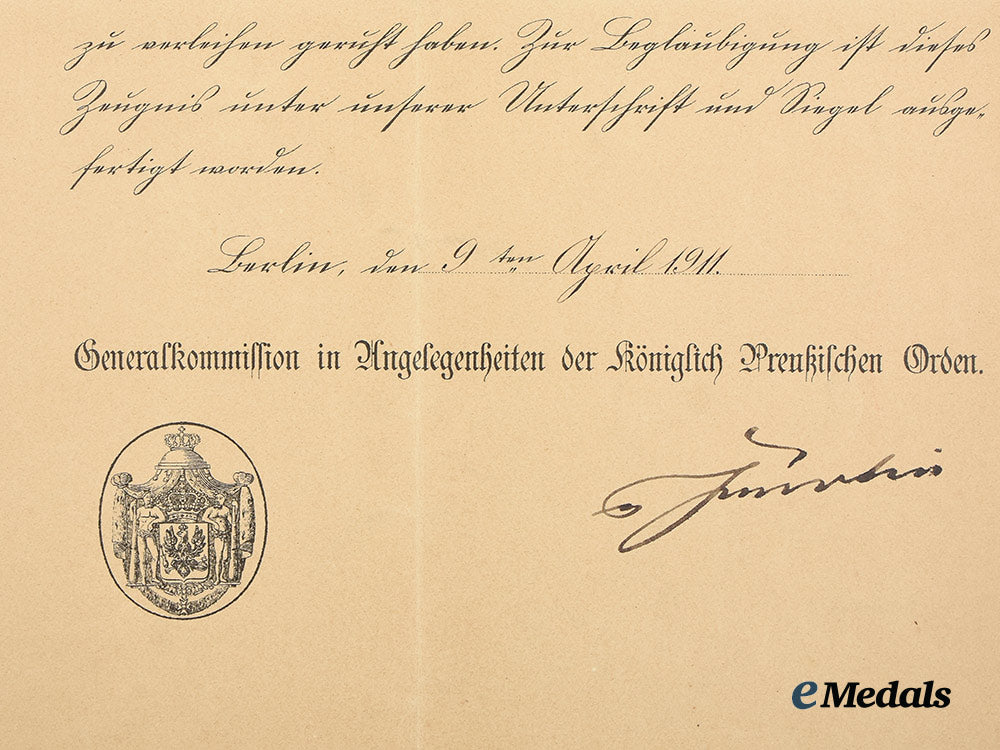 zu verleihen geruht haben. Zur Beglaubigung ist dieses
Zeugnis unter unserer Unterschrift und Siegel ausge-
fertigt worden.
Berlin, den 9ten April 1911.
Generalkommission in Angelegenheiten der Königlich Preußischen Orden.
eMedals